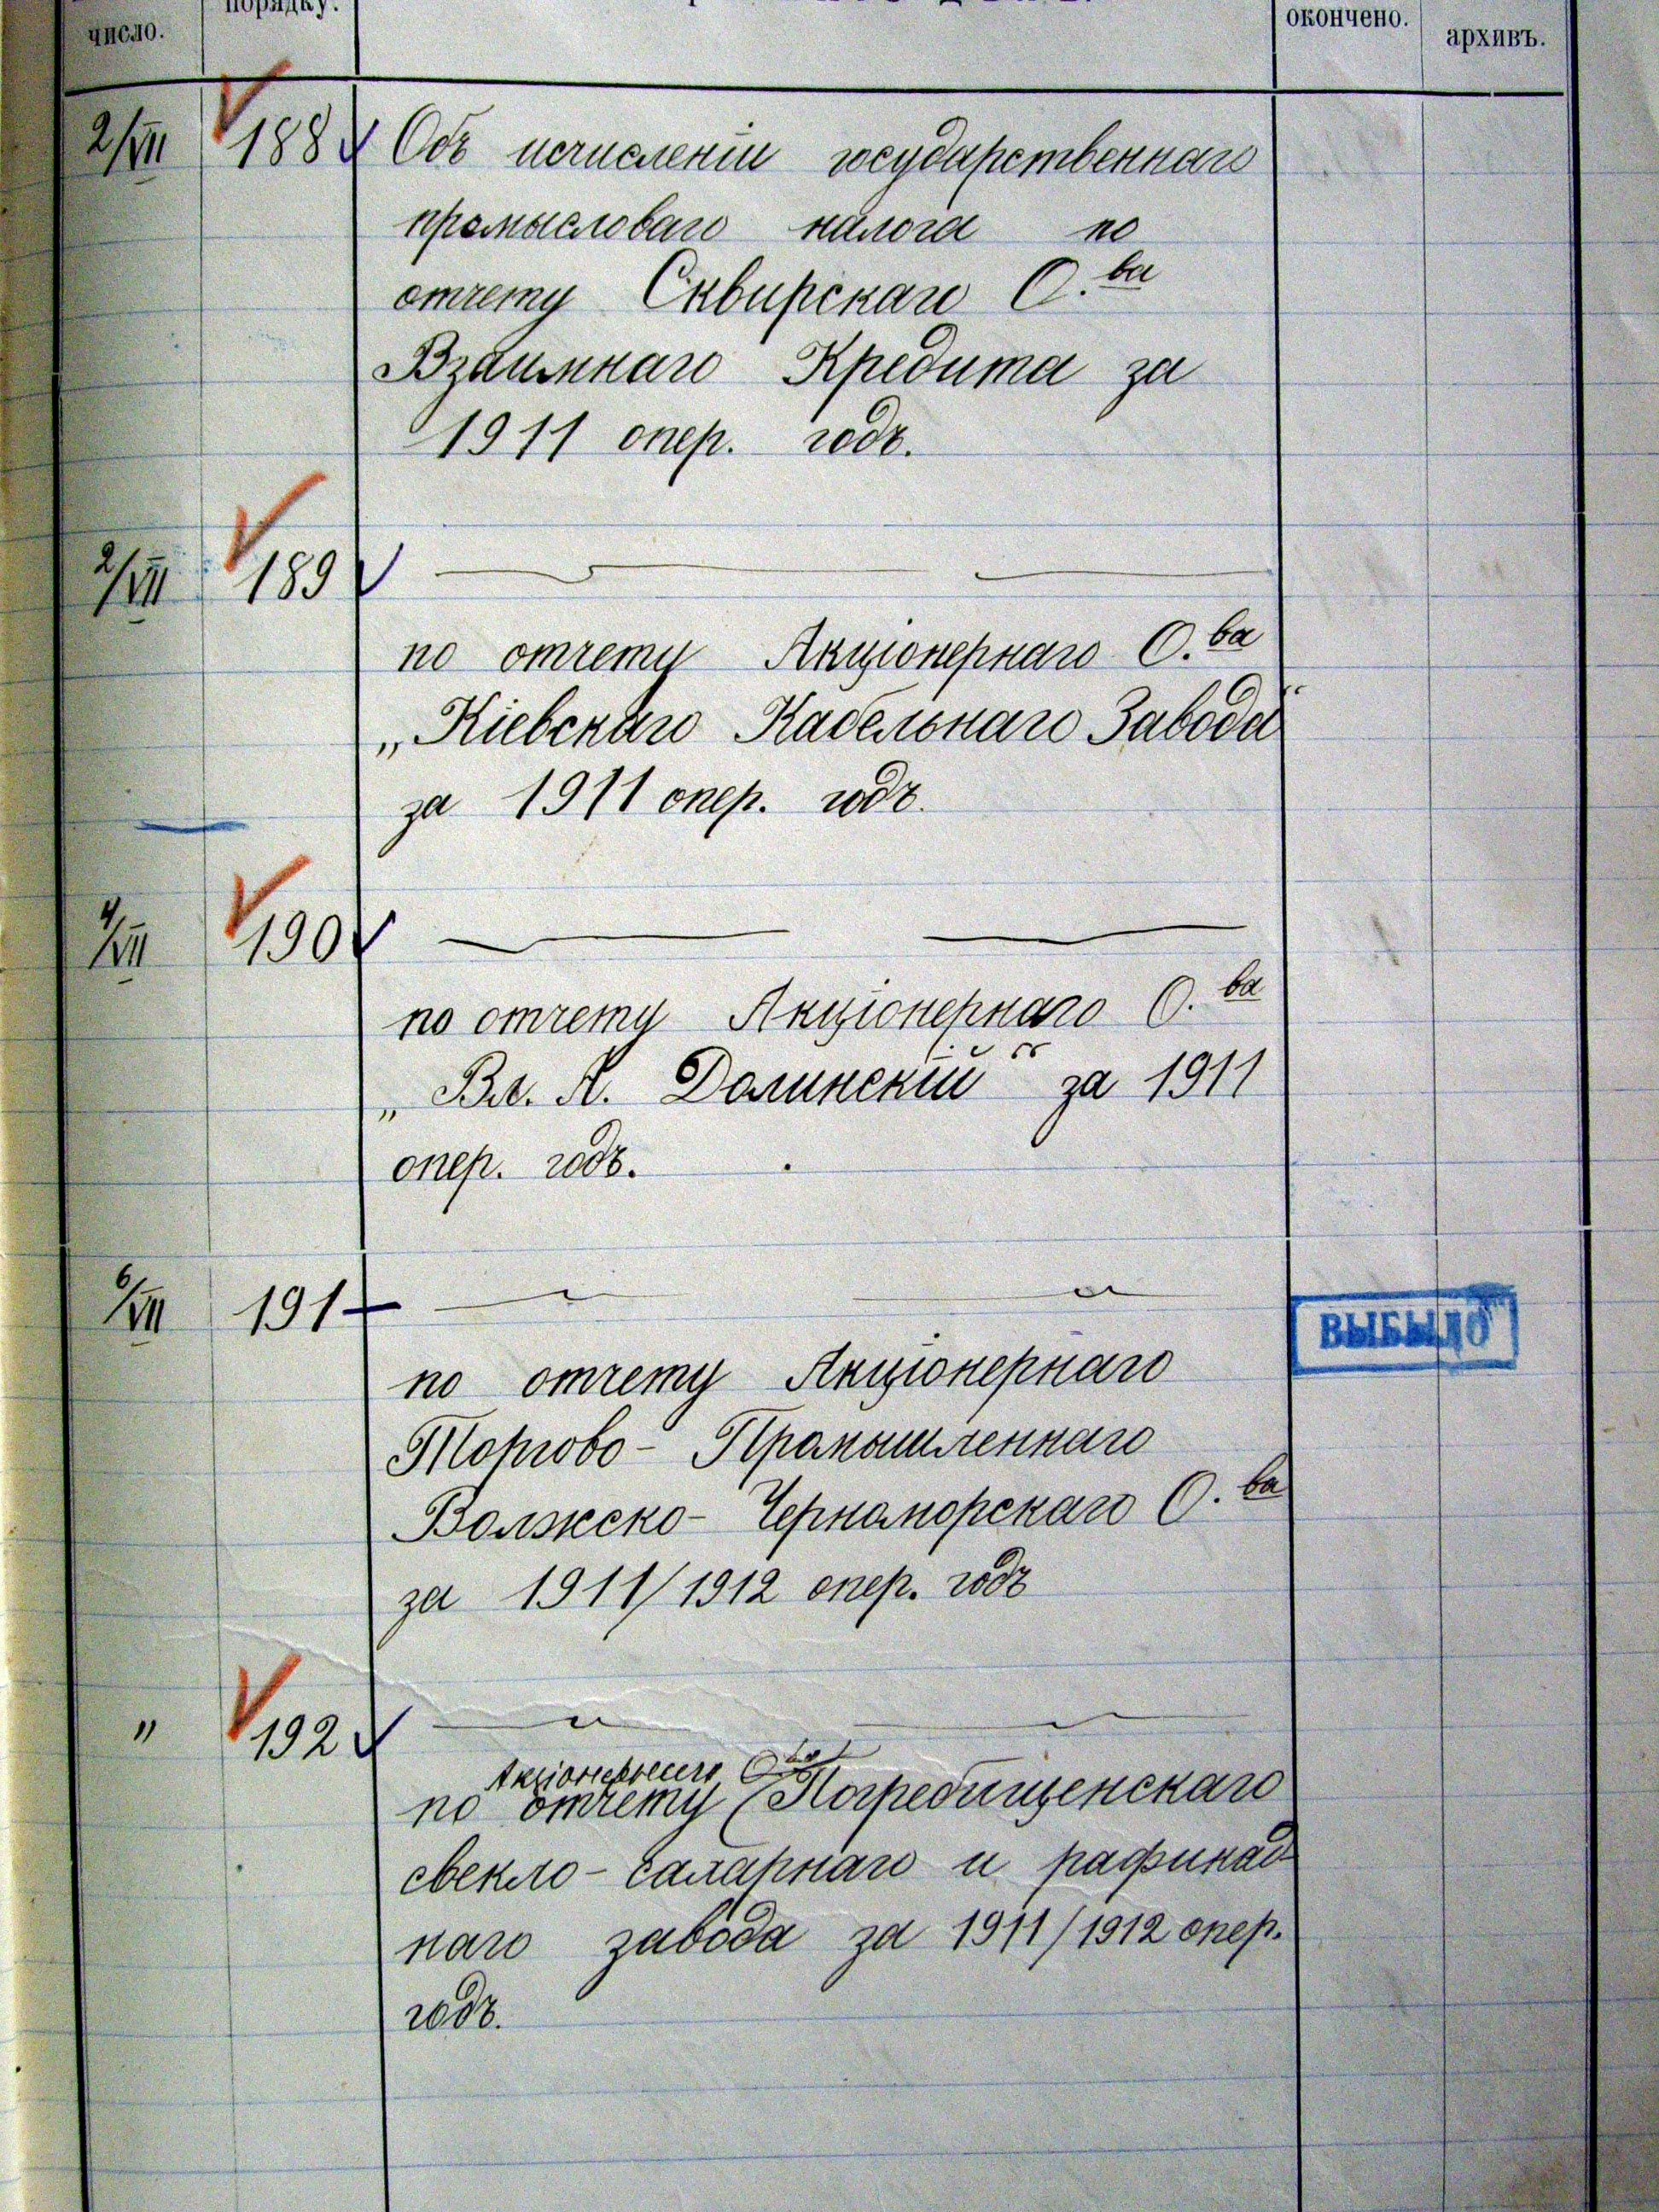 число.
порядку.
окончено.
архивъ.
2/VII 188 Объ исчисленіи государственнаго
промысловаго налога по
отчету Сквирскаго О.ва
Взаимнаго Кредита за
1911 опер. годъ.
2/VII 189
по отчету Акціонернаго О.ва
„Кіевскаго Кабельнаго Завода“
за 1911 опер. годъ.
4/VII 190
по отчету Акціонернаго О.ва
„Вл. А. Долинскій“ за 1911
опер. годъ.
6/VII 191
ВЫБЫЛО
по отчету Акціонернаго
Торгово-Промышленнаго
Волжско-Черноморскаго О.ва
за 1911/1912 опер. годъ
" 192
Акціонернаго О-ва
по отчету (Погребищенскаго
свекло-сахарнаго и рафинад
наго завода за 1911/1912 опер.
годъ.